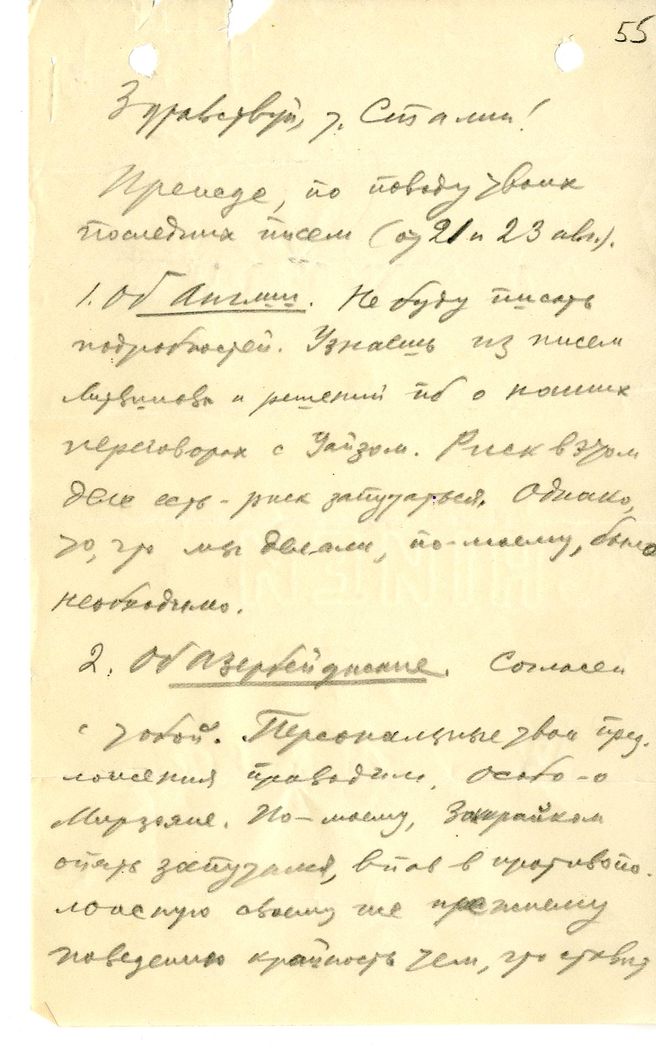 55
Здравствуй, т. Сталин!
Прежде, по поводу твоих
последних писем (от 21 и 23 авг.).
1. Об Англии. Не буду писать
подробностей. Узнаешь из писем
Литвинова и решений пб о наших
переговорах с Уайзом. Риск в этом
деле есть – риск запутаться. Однако,
то, что мы делали, по-моему, было
необходимо.
2. Об Азербейджане. Согласен
с тобой. Персональные твои пред-
ложения проводим, особо – о
Мирзояне. По-моему, Закрайком
опять запутался, впав в противопо-
ложную своему же прежнему
поведению крайность тем, что ставит